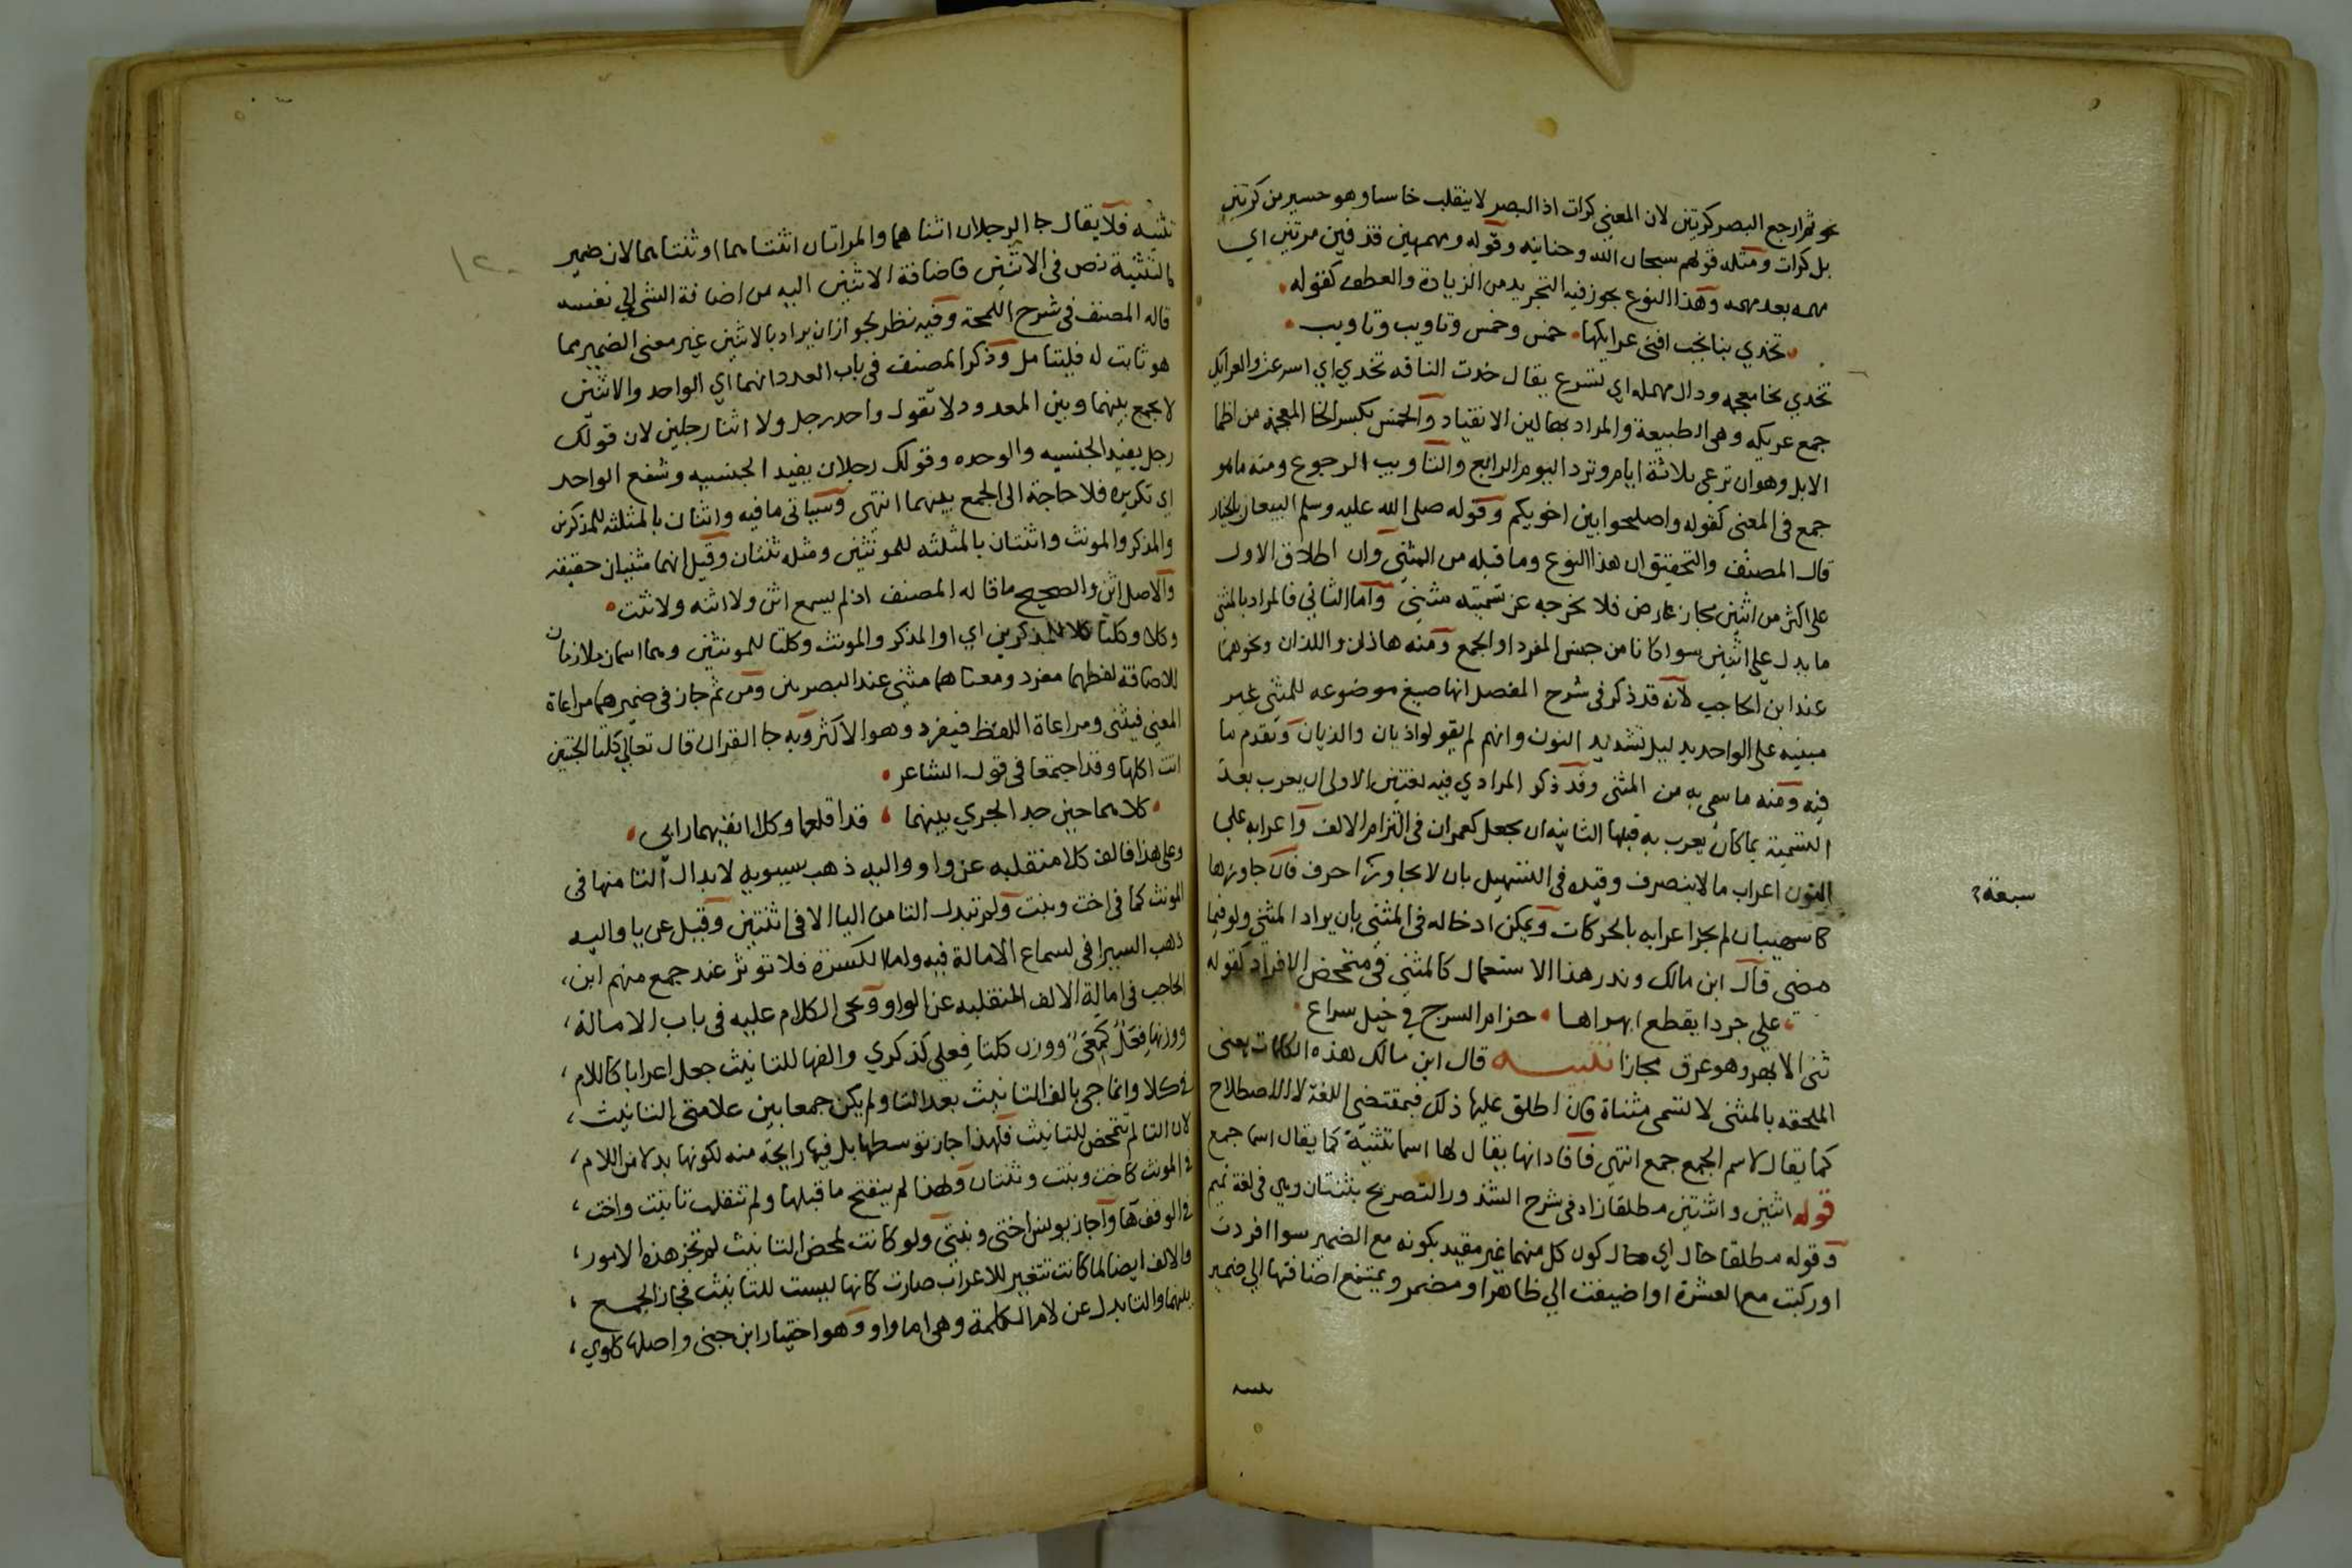 نحو ثم ارجع البصر كرتين لان المعنى كرات اذ البصر لا ينقلب خاسا وهو حسير من كرتين
بل كرات ومثله قولهم سبحان الله وحنانيه وقوله ومهمهين قذفين مرتين اي
مهمه بعد مهمه وهذا النوع يجوز فيه التجريد من الزيادة والعطف كقوله
تخدي بنا نجب افنى عرايكها خمس وخمس وتاويب وتاويب
تخدي بخا معجمه ودال مهمله اي تسرع يقال خدت الناقه تخدي اي اسرعت والعرايك
جمع عريكه وهي الطبيعة والمراد بها لين الانقياد والخمس بكسر الخا المعجمة من اظما
الابل وهو ان ترعى ثلاثة ايام وترد اليوم الرابع والتاويب الرجوع ومنه ما هو
جمع في المعنى كقوله واصلحوا بين اخويكم وقوله صلى الله عليه وسلم البيعان بالخيار
قال المصنف والتحقيق ان هذا النوع وما قبله من المثنى وان اطلاق الاول
على اكثر من اثنين مجاز عارض فلا يخرجه عن تسميته مثنى واما الثاني فالمراد بالمثنى
ما يدل على اثنين سوا كانا من جنس المفرد او الجمع ومنه هاذان واللذان ونحوهما
عند ابن الحاجب لانه قد ذكر في شرح المفصل انها صيغ موضوعه للمثنى غير
مبنيه على الواحد بدليل تشديد النون وانهم لم يقولوا ذيان والذيان وتقدم ما
فيه ومنه ما سمي به من المثنى وقد ذكر المرادي فيه لغتين الاولى ان يعرب بعد
التسمية بما كان يعرب به قبلها الثانيه ان يجعل كعمران في التزام الالف واعرابه على
النون اعراب ما لا ينصرف وقيده في التسهيل بان لا يجاوز احرف فان جاوزها
سبعة
كاشهيبان لم يجز اعرابه بالحركات ويمكن ادخاله في المثنى بان يراد المثنى ولو فيما
مضى قال ابن مالك وندر هذا الاستعمال كالمثنى في متمحض الافراد كقوله
على جردا يقطع ابهراها حزام السرج في خيل سراع
ثنى الابهر وهو عرق مجازا تنبيه قال ابن مالك هذه الكلمات يعني
الملحقه بالمثنى لا تسمى مثناة فان اطلق عليها ذلك فبمقتضى اللغة لا الاصطلاح
كما يقال لاسم الجمع جمع انتهى فافاد انها يقال لها اسما تثنية كما يقال اسما جمع
قوله اثنين واثنتين مطلقا زاد في شرح الشذور التصريح بثنتان وهي في لغة تميم
وقوله مطلقا حال اي حال كون كل منهما غير مقيد بكونه مع الضمير سوا افردت
او ركبت مع العشرة او اضيفت الى ظاهر او مضمر ويمتنع اضافتها الى ضمير
تثنيه فلا يقال جا الرجلان اثناهما والمراتان اثنتاهما او ثنتاهما لان ضمير
التثنية نص في الاثنين فاضافة الاثنين اليه من اضافة الشي الى نفسه
قاله المصنف في شرح اللمحة وفيه نظر لجواز ان يراد بالاثنين غير معنى الضمير مما
هو ثابت له فليتامل وذكر المصنف في باب العدد انهما اي الواحد والاثنين
لا يجمع بينهما وبين المعدود لا تقول واحد رجل ولا اثنا رجلين لان قولك
رجل يفيد الجنسيه والوحده وقولك رجلان يفيد الجنسيه وشفع الواحد
اي تكريره فلا حاجة الى الجمع بينهما انتهى وسياتي ما فيه واثنان بالمثلثه للمذكرين
والمذكر والمونث واثنتان بالمثلثه للمونثين ومثله ثنتان وقيل انهما مثنيان حقيقة
والاصل اثن والصحيح ما قاله المصنف اذ لم يسمع اثن ولا اثنه ولا ثنت
وكلا وكلتا كلا للمذكرين اي او المذكر والمونث وكلتا للمونثين وهما اسمان ملازمان
للاضافة لفظهما مفرد ومعناهما مثنى عند البصريين ومن ثم جاز في ضميرهما مراعاة
المعنى فيثنى ومراعاة اللفظ فيفرد وهو الاكثر وبه جا القران قال تعالى كلتا الجنتين
اتت اكلها وقد اجتمعا في قول الشاعر
كلاهما حين جد الجري بينهما قد اقلعا وكلا انفيهما رابي
وعلى هذا فالف كلا منقلبه عن واو واليه ذهب سيبويه لابدال التا منها في
المونث كما في اخت وبنت ولم تبدل التا من اليا الا في اثنتين وقيل عن يا واليه
ذهب السيرافي لسماع الامالة فيه واما الكسرة فلا توثر عند جمع منهم ابن
الحاجب في امالة الالف المنقلبه عن الواو ويجي الكلام عليه في باب الامالة
ووزنها فِعَلٌ كمِعًى ووزن كلتا فِعلى كذكري والفها للتانيث جعل اعرابا كاللام
في كلا وانما جي بالف التانيث بعد التا ولم يكن جمعا بين علامتي التانيث
لان التا لم تتمحض للتانيث فلهذا جاز توسطها بل فيها رايحة منه لكونها بدلا من اللام
في المونث كاخت وبنت وثنتان ولهذا لم ينفتح ما قبلها ولم تنقلب تا بنت واخت
في الوقف ها واجاز يونس اختي وبنتي ولو كانت لمحض التانيث لم تجز هذه الامور
والالف ايضا لما كانت تتغير للاعراب صارت كانها ليست للتانيث فجاز الجمع
بينهما والتا بدل عن لام الكلمة وهي اما واو وهو اختيار ابن جني واصلها كلوي